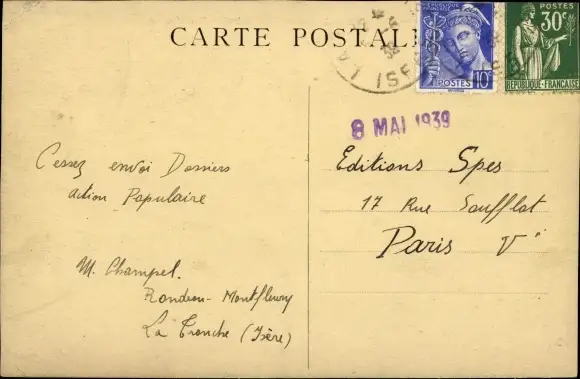 CARTE POSTALE
ISÈRE
POSTES
10ᶜ
POSTES
30ᶜ
RÉPUBLIQUE-FRANÇAISE
8 MAI 1939
Cessez envoi Dossiers
action Populaire
M. Champel.
Rondeau-Montfleury
La Tronche (Isère)
Editions Spes
17 Rue Soufflot
Paris V